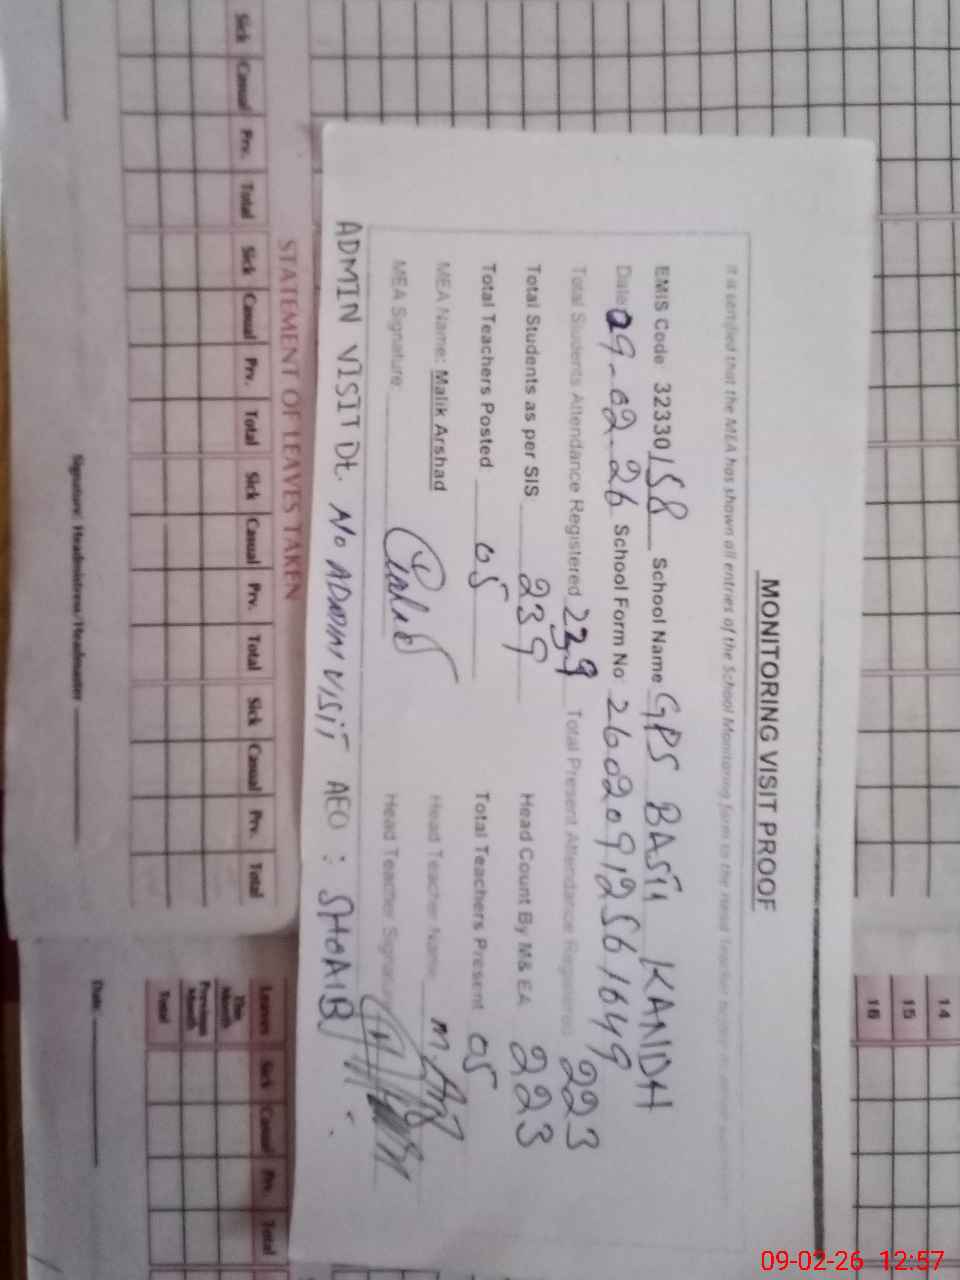 MONITORING VISIT PROOF
It is certified that the MEA has shown all entries of the School Monitoring form to the Head Teacher
EMIS Code: 32330158 School Name GPS BASTI KANDH
Date 09-02-26 School Form No 26020912561649
Total Students Attendance Registered 239 Total Present Attendance Registered 223
Total Students as per SIS 239 Head Count By M& EA 223
Total Teachers Posted 05 Total Teachers Present 05
MEA Name: Malik Arshad Head Teacher Name
MEA Signature: Head Teacher Signature
ADMIN VISIT Dt. No ADMIN VISIT AEO : SHOAIB
STATEMENT OF LEAVES TAKEN
Sick Casual Prv. Total Sick Casual Prv. Total Sick Casual Prv. Total Sick Casual Prv. Total
Signature Headmistress/Headmaster
Leaves Sick Casual Prv. Total
This Month
Previous Month
Total
Date:
14
15
16
09-02-26 12:57